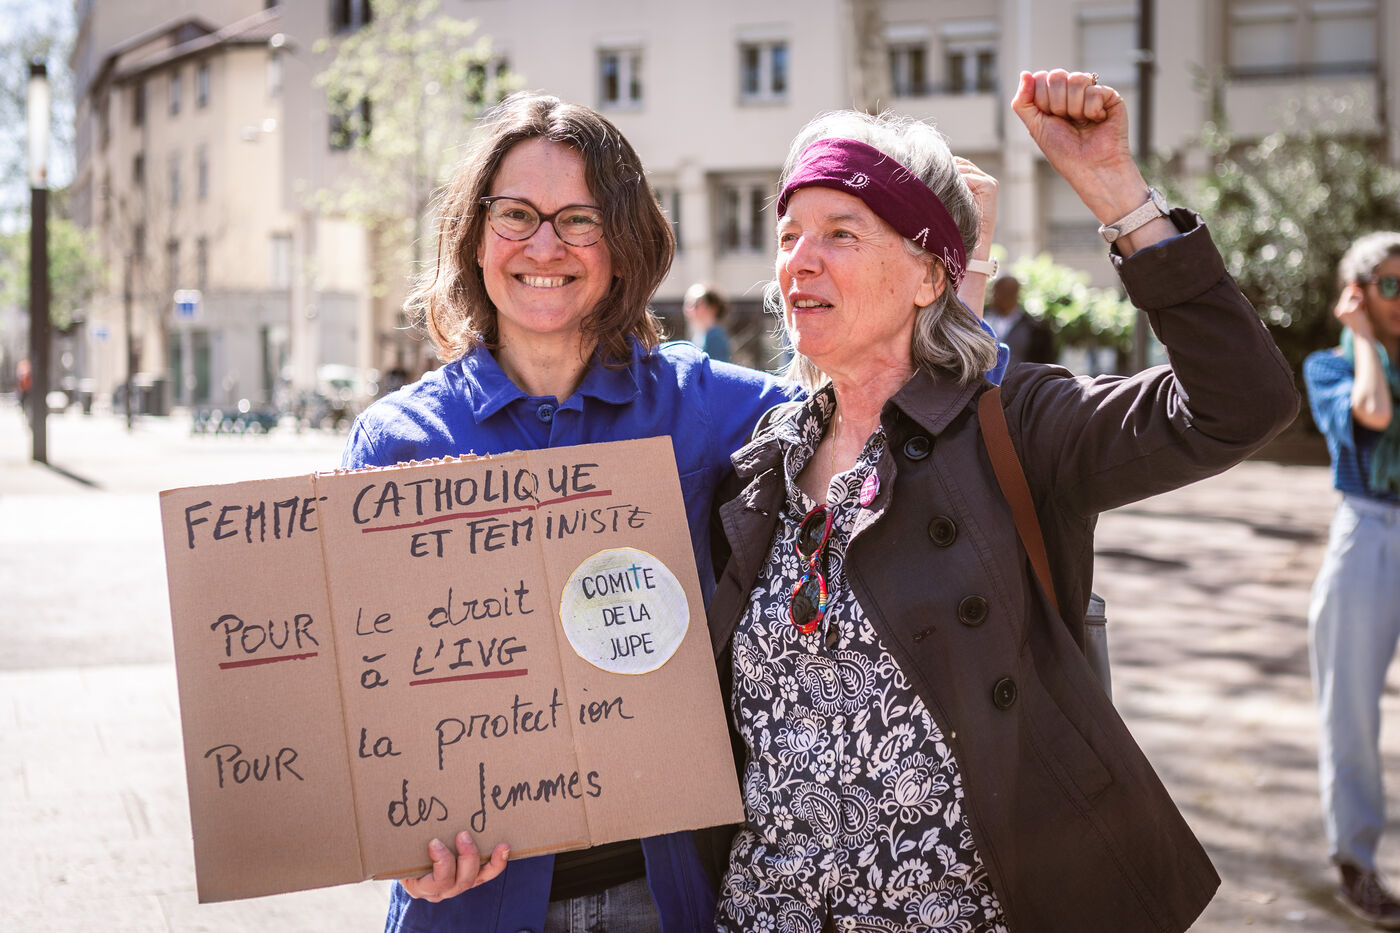 FEMME CATHOLIQUE
ET FEMINISTE
POUR Le droit
à L'IVG
POUR La protection
des femmes
COMITE
DE LA
JUPE